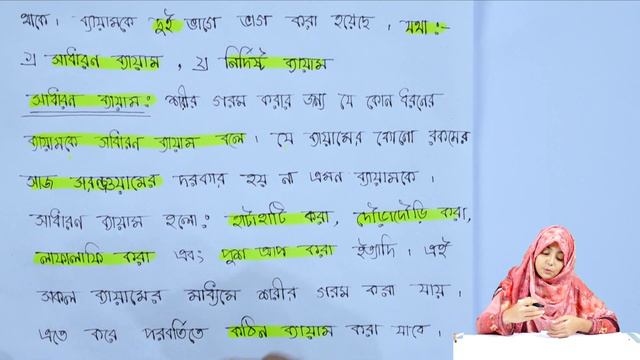 থাকে। ব্যায়ামকে দুই ভাগে ভাগ করা হয়েছে। যথা:-
১) সাধারন ব্যায়াম, ২) নির্দিষ্ট ব্যায়াম
সাধারন ব্যায়াম: শরীর গরম করার জন্য যে কোন ধরনের
ব্যায়ামকে সাধারন ব্যায়াম বলে। যে ব্যায়ামের কোনো রকমের
সাজ সরঞ্জামের দরকার হয় না এমন ব্যায়ামকে।
সাধারন ব্যায়াম হলো: হাটাহাটি করা, দৌড়াদৌড়ি করা,
লাফালাফি করা এবং পুশ আপ করা ইত্যাদি। এই
সকল ব্যায়ামের মাধ্যমে শরীর গরম করা যায়।
এতে করে পরবর্তিতে কঠিন ব্যায়াম করা যাবে।